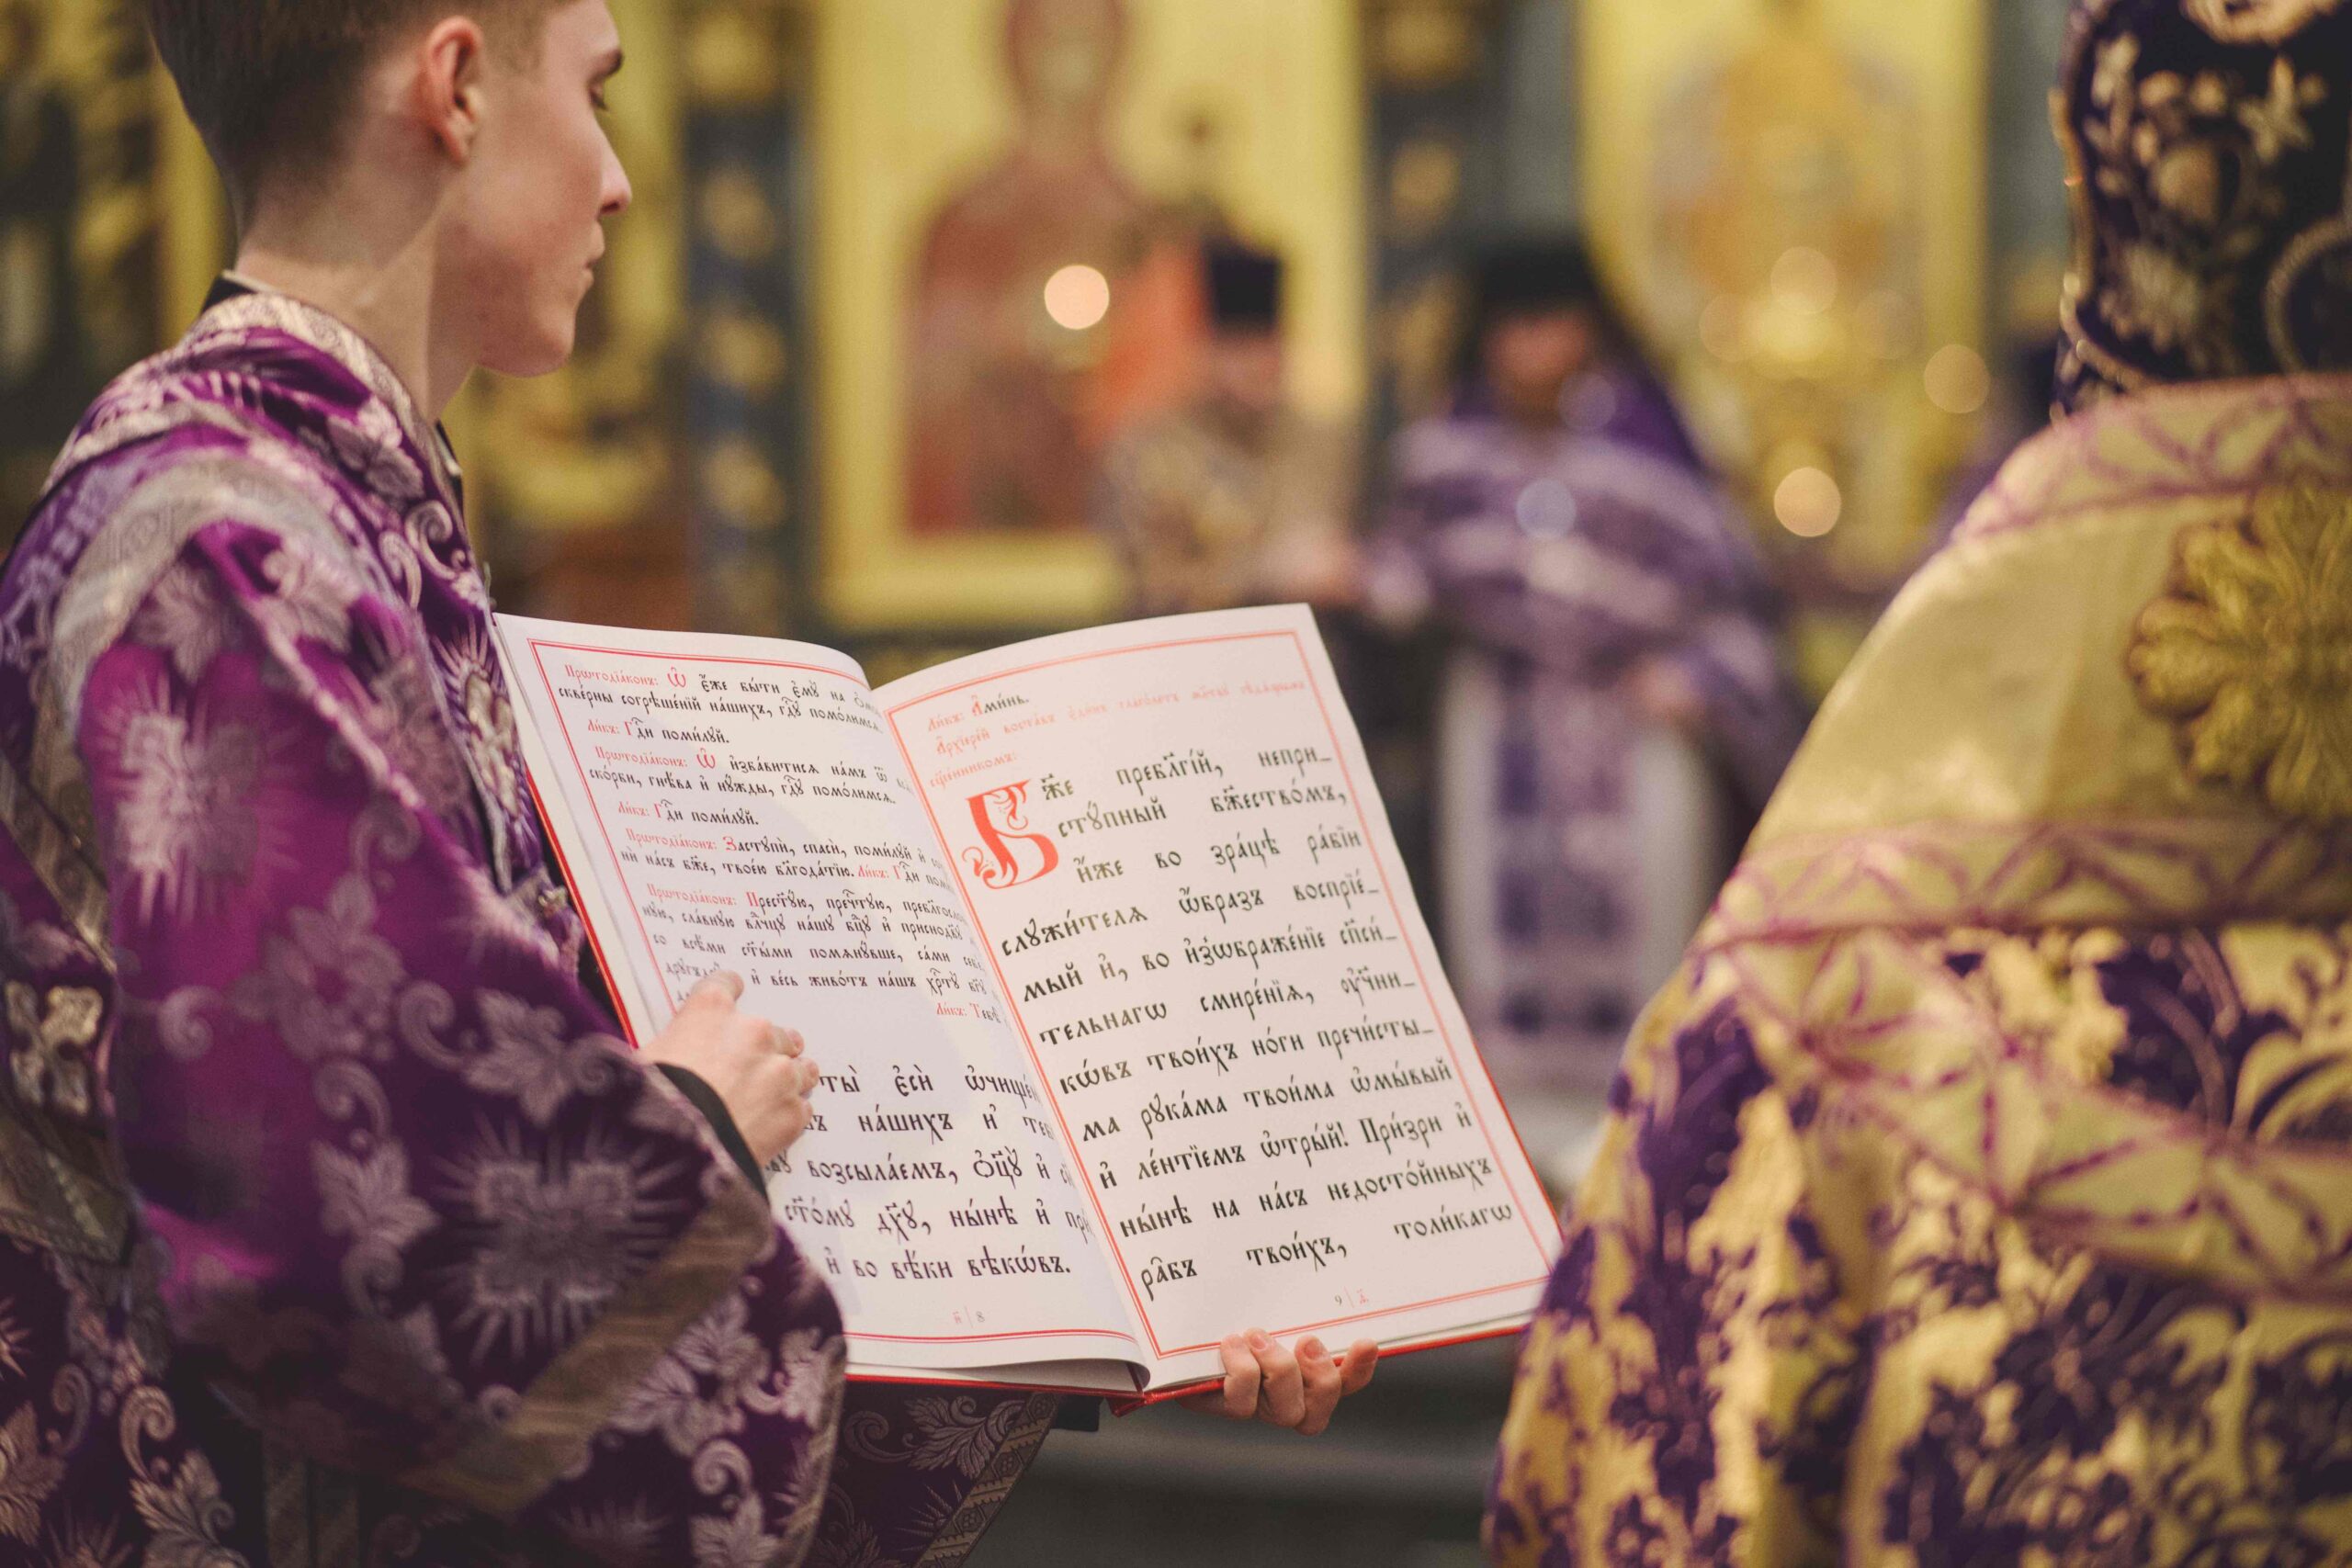 Прѡтодїа́конъ: Ѽ є҆́же бы́ти є҆мꙋ̀ на
скве́рны согрѣше́нїй на́шихъ, гдⷭ҇ꙋ помо́лимсѧ.
Ли́къ: Гдⷭ҇и поми́лꙋй.
Прѡтодїа́конъ: Ѽ и҆зба́витисѧ на́мъ ѿ
ско́рби, гнѣ́ва и҆ нꙋ́жды, гдⷭ҇ꙋ помо́лимсѧ.
Ли́къ: Гдⷭ҇и поми́лꙋй.
Прѡтодїа́конъ: Застꙋпѝ, спасѝ, поми́лꙋй и҆
ны на́съ бж҃е, твоє́ю блгⷣтїю. Ли́къ: Гдⷭ҇и
Прѡтодїа́конъ: Прест҃ꙋ́ю, пречⷭ҇тꙋю,
нꙋю, сла́внꙋю влⷣчцꙋ на́шꙋ бцⷣꙋ и҆ приснодв҃ꙋ
со всѣ́ми ст҃ы́ми помѧнꙋ́вше, са́ми
и҆ ве́сь живо́тъ на́шъ хрⷭ҇тꙋ̀ бг҃ꙋ
Ли́къ:
ты̀ є҆сѝ
на́шихъ и҆
возсыла́емъ, ѻ҆ц҃ꙋ̀ и҆
ст҃о́мꙋ дх҃ꙋ, ны́нѣ и҆
и҆ во вѣ́ки вѣкѡ́въ.
и҃ | 8
Ли́къ: А҆ми́нь.
А҆рхїере́й
сщ҃е́нникомъ:
Бж҃е пребл҃гі́й, непри_
стꙋ́пный бж҃ество́мъ,
и҆́же во зра́цѣ ра́бїи
слꙋжи́телѧ ѡ҆́бразъ воспрїе́_
мый и҆, во и҆з̾ѡбраже́нїе сп҃си́_
тельнагѡ смире́нїѧ, ᲂу҆чн҃и_
кѡ́въ твои́хъ но́ги пречи́сты_
ма рꙋка́ма твои́ма ѡ҆мы́вый
и҆ ле́нтїемъ ѡ҆тры́й! При́зри и҆
ны́нѣ на на́съ недосто́йныхъ
ра̑бъ твои́хъ, толи́кагѡ
9 | ѳ҃